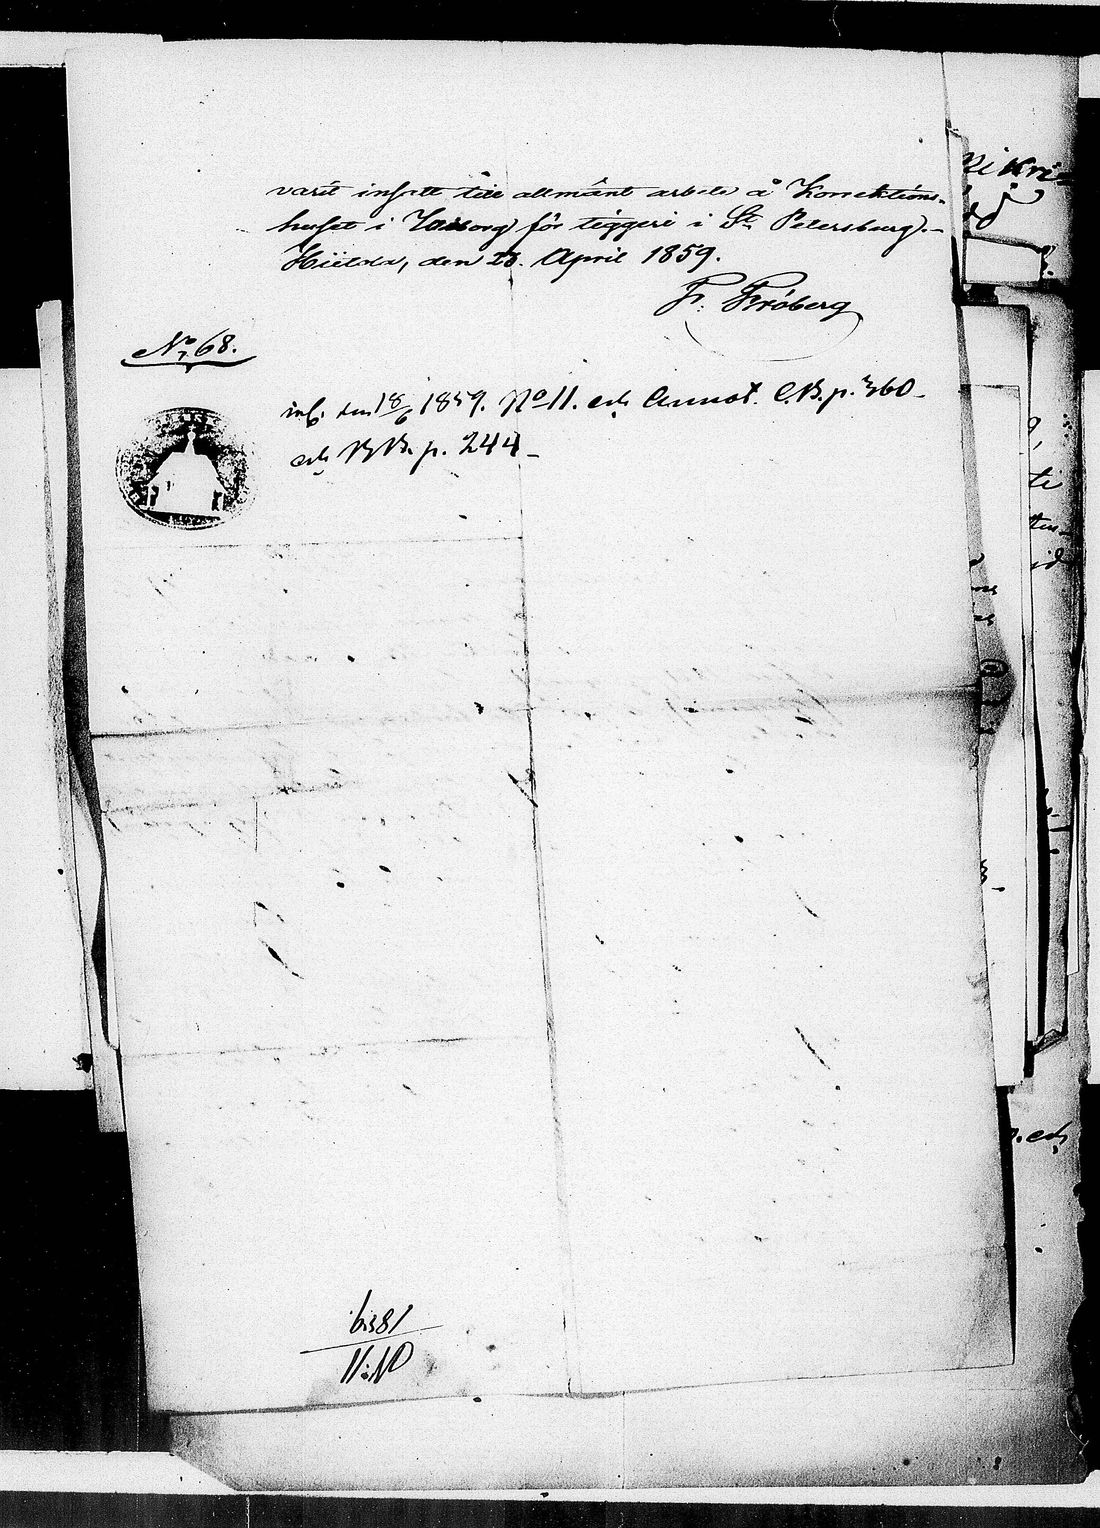 varit insatt till allmänt arbete å Korrektions-
huset i Wiborg för tiggeri i St. Petersburg.-
Hiitola, den 23. April 1859.
Fr. Fröberg
No 68.
inl. den 18/6 1859. No 11. och Annot. C.B. p. 360-
och B.B. p. 244-
1859.
No: 11